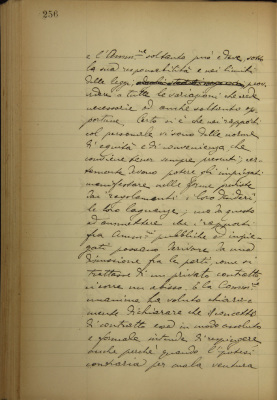 256
e l'Amm.ne soltanto può e deve sotto
la sua responsabilità e nei limiti
delle leggi
a tutte le variazioni che crede
necessarie ed anche soltanto op-
portune. Certo vi è che nei rapporti
col personale vi sono delle norme
di equità e di convenienza che
conviene tener sempre presenti; cer-
tamente devono potere gli impiegati
manifestare nelle forme
dai regolamenti i loro desideri,
le loro lagnanze; ma da questo
ad ammettere che i rapporti
fra Amm.ni pubbliche ed impie-
gati possano servire di una
discussione fra le parti, come si
trattasse di un privato contratto,
vi corre un abisso. E la Comm.ne
unanime ha voluto chiara-
mente dichiarare che il concetto
di contratto essa in modo assoluto
e formale intende di respingere
anche perchè quando l'ipotesi
contraria per mala ventura